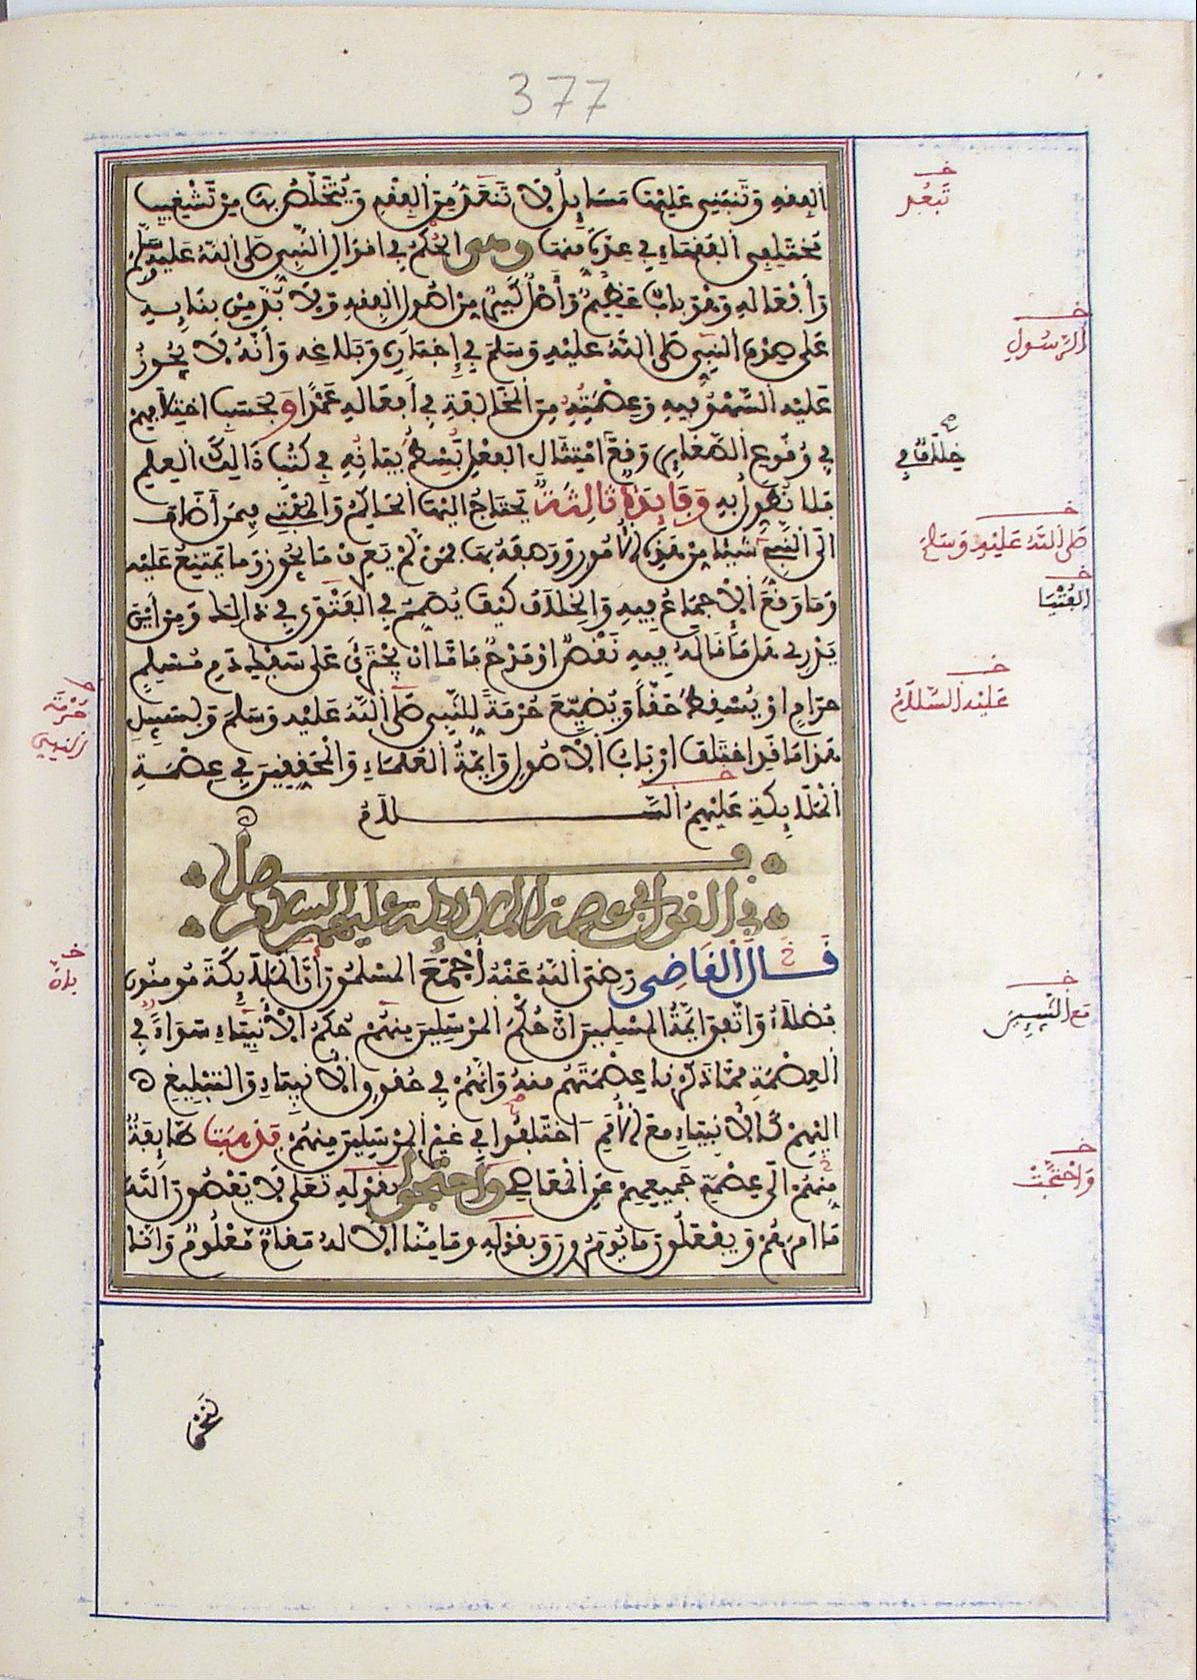 377
الفقه وتنبني عليها مسائل لا تنعد من الفقه ويتخلص بها من تشغيب
مختلفي الفقهاء في عدة منها وهي الحكم في اقوال النبي صلى الله عليه وسلم
وأفعاله وهو باب عظيم وأصل كبير من اصول الفقه ولا بد من بنايه
على صدق النبي صلى الله عليه وسلم في إخباره وبلاغه وأنه لا يجوز
عليه السهو فيه وعصمته من المخالفة في أفعاله عمدا وبحسب اختلافهم
في وقوع الصغاير وقع امتثال الفعل بسط بيانه في كتب ذالك العلم
فلا نطول به وفايدة ثالثة يحتاج اليها الحاكم والمفتي فيمن أضاف
الى النبي شيئا من هذه الأمور ووصفه بها فمن لم يعرف ما يجوز وما يمتنع عليه
وما وقع الاجماع فيه والخلاف كيف يصمم في الفتوى في ذالك ومن أين
يدري هل ما قاله فيه نقص او مدح فاما ان يجترئ على سفك دم مسلم
حرام او يسقط حقا ويضيع حرمة للنبي صلى الله عليه وسلم وبسبيل
هذا ما قد اختلف ارباب الاصول وايمة العلماء والمحققين في عصمة
الملايكة عليهم السلام
فصل
في القول في عصمة الملايكة عليهم السلام
قال القاضي رضي الله عنه أجمع المسلمون أن الملايكة مومنون
فضلاء واتفق ايمة المسلمين ان حكم المرسلين منهم حكم الانبياء سواء في
العصمة مما ذكرنا عصمتهم منه وانهم في حقوق الانبياء والتبليغ
اليهم كالانبياء مع الأمم اختلفوا في غير المرسلين منهم فذهبت طايفة
منهم الى عصمة جميعهم عن المعاصي واحتجوا بقوله تعلى لا يعصون الله
ما امرهم ويفعلون ما يومرون وبقوله وما منا الا له مقام معلوم وانا
تبعد
الرسول
خلافا في
صلى الله عليه وسلم
الفتيا
عليه السلام
مع النبيين
واحتجت
حرمة
النبي
بان
لنحن